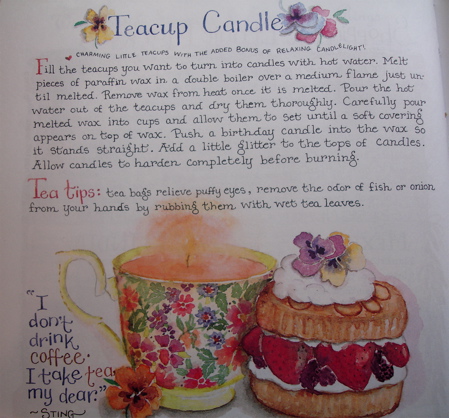 Teacup Candle
CHARMING LITTLE TEACUPS WITH THE ADDED BONUS OF RELAXING CANDLELIGHT!
Fill the teacups you want to turn into candles with hot water. Melt
pieces of paraffin wax in a double boiler over a medium flame just un-
til melted. Remove wax from heat once it is melted. Pour the hot
water out of the teacups and dry them thoroughly. Carefully pour
melted wax into cups and allow them to set until a soft covering
appears on top of wax. Push a birthday candle into the wax so
it stands straight. Add a little glitter to the tops of candles.
Allow candles to harden completely before burning.
Tea tips: tea bags relieve puffy eyes, remove the odor of fish or onion
from your hands by rubbing them with wet tea leaves.
"I
don't
drink
coffee.
I take tea
my dear."
~STING~